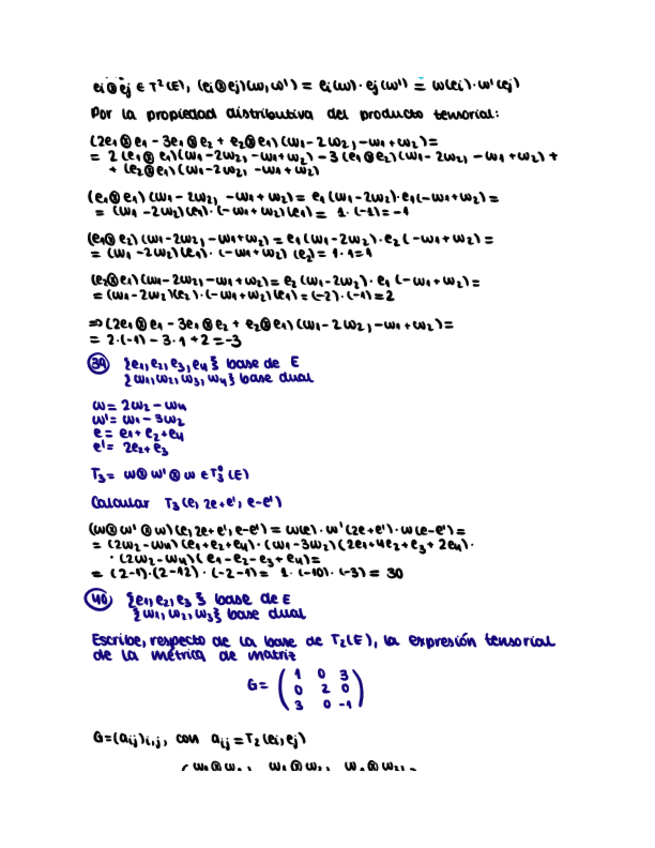 ei⊗ej ∈ T²(E), (ei⊗ej)(ω,ω') = ei(ω)·ej(ω') = ω(ei)·ω'(ej)
Por la propiedad distributiva del producto tensorial:
(2e₁⊗e₁ - 3e₁⊗e₂ + e₂⊗e₁)(ω₁-2ω₂, -ω₁+ω₂)=
= 2(e₁⊗e₁)(ω₁-2ω₂, -ω₁+ω₂) - 3(e₁⊗e₂)(ω₁-2ω₂, -ω₁+ω₂) +
+ (e₂⊗e₁)(ω₁-2ω₂, -ω₁+ω₂)
(e₁⊗e₁)(ω₁-2ω₂, -ω₁+ω₂) = e₁(ω₁-2ω₂)·e₁(-ω₁+ω₂)=
= (ω₁-2ω₂)(e₁)·(-ω₁+ω₂)(e₁)= 1·(-1)=-1
(e₁⊗e₂)(ω₁-2ω₂, -ω₁+ω₂) = e₁(ω₁-2ω₂)·e₂(-ω₁+ω₂)=
= (ω₁-2ω₂)(e₁)·(-ω₁+ω₂)(e₂)= 1·1=1
(e₂⊗e₁)(ω₁-2ω₂, -ω₁+ω₂)= e₂(ω₁-2ω₂)·e₁(-ω₁+ω₂)=
= (ω₁-2ω₂)(e₂)·(-ω₁+ω₂)(e₁)=(-2)·(-1)=2
⇒ (2e₁⊗e₁ - 3e₁⊗e₂ + e₂⊗e₁)(ω₁-2ω₂, -ω₁+ω₂)=
= 2·(-1) - 3·1 + 2 = -3
39 {e₁,e₂,e₃,e₄} base de E
{ω₁,ω₂,ω₃,ω₄} base dual
ω = 2ω₂ - ω₄
ω' = ω₁ - 3ω₂
e = e₁+e₂+e₄
e' = 2e₂+e₃
T₃ = ω⊗ω'⊗ω ∈ T₃⁰(E)
Calcular T₃(e, 2e+e', e-e')
(ω⊗ω'⊗ω)(e, 2e+e', e-e') = ω(e)·ω'(2e+e')·ω(e-e')=
= (2ω₂-ω₄)(e₁+e₂+e₄)·(ω₁-3ω₂)(2e₁+4e₂+e₃+2e₄)·
·(2ω₂-ω₄)(e₁-e₂-e₃+e₄)=
= (2-1)·(2-12)·(-2-1)= 1·(-10)·(-3) = 30
40 {e₁,e₂,e₃} base de E
{ω₁,ω₂,ω₃} base dual
Escribe, respecto de la base de T₂(E), la expresión tensorial
de la métrica de matriz
G= ( 1 0 3
0 2 0
3 0 -1 )
G=(aij)i,j, con aij=T₂(ei,ej)